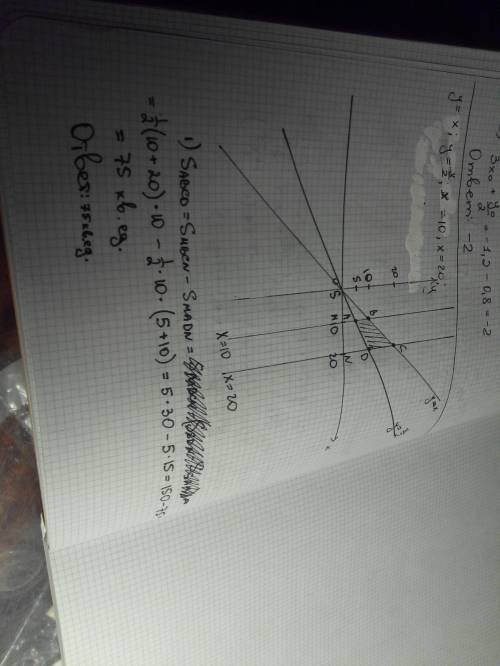 3x₀ + y₀/2 = -1,2 - 0,8 = -2
Ответ: -2
y = x; y = x/2; x = 10, x = 20.
y
20
10
5
B
C
A
D
O
5
M
10
N
20
x
y=x
x=10
x=20
1) S_ABCD = S_MBCN - S_MADN =
= 1/2(10+20)·10 - 1/2·10·(5+10) = 5·30 - 5·15 = 150-75
= 75 кв. ед.
Ответ: 75 кв.ед.